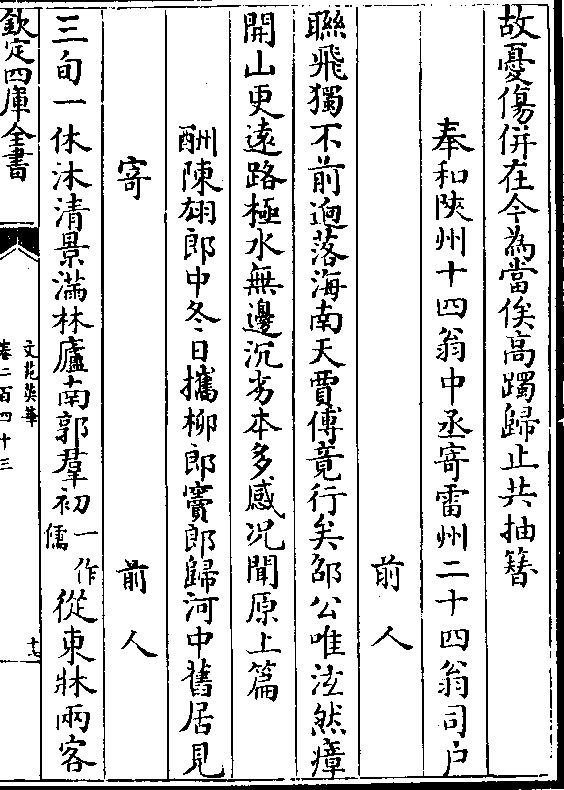 故憂傷併在今為當俟高躅歸止共抽簮
奉和陜州十四翁中丞寄雷州二十四翁司户
前人
聮飛獨不前逈落海南天賈傅竟行矣邵公唯泫然瘴
開山更遠路極水無邊沉劣本多感况聞原上篇
酬陳翃郎中冬日攜柳郎竇郎歸河中舊居見
寄 前人
三旬一休沐清景滿林廬南郭羣初一作儒從東牀兩客
欽定四庫全書
文苑英華
卷二百四十三
十七